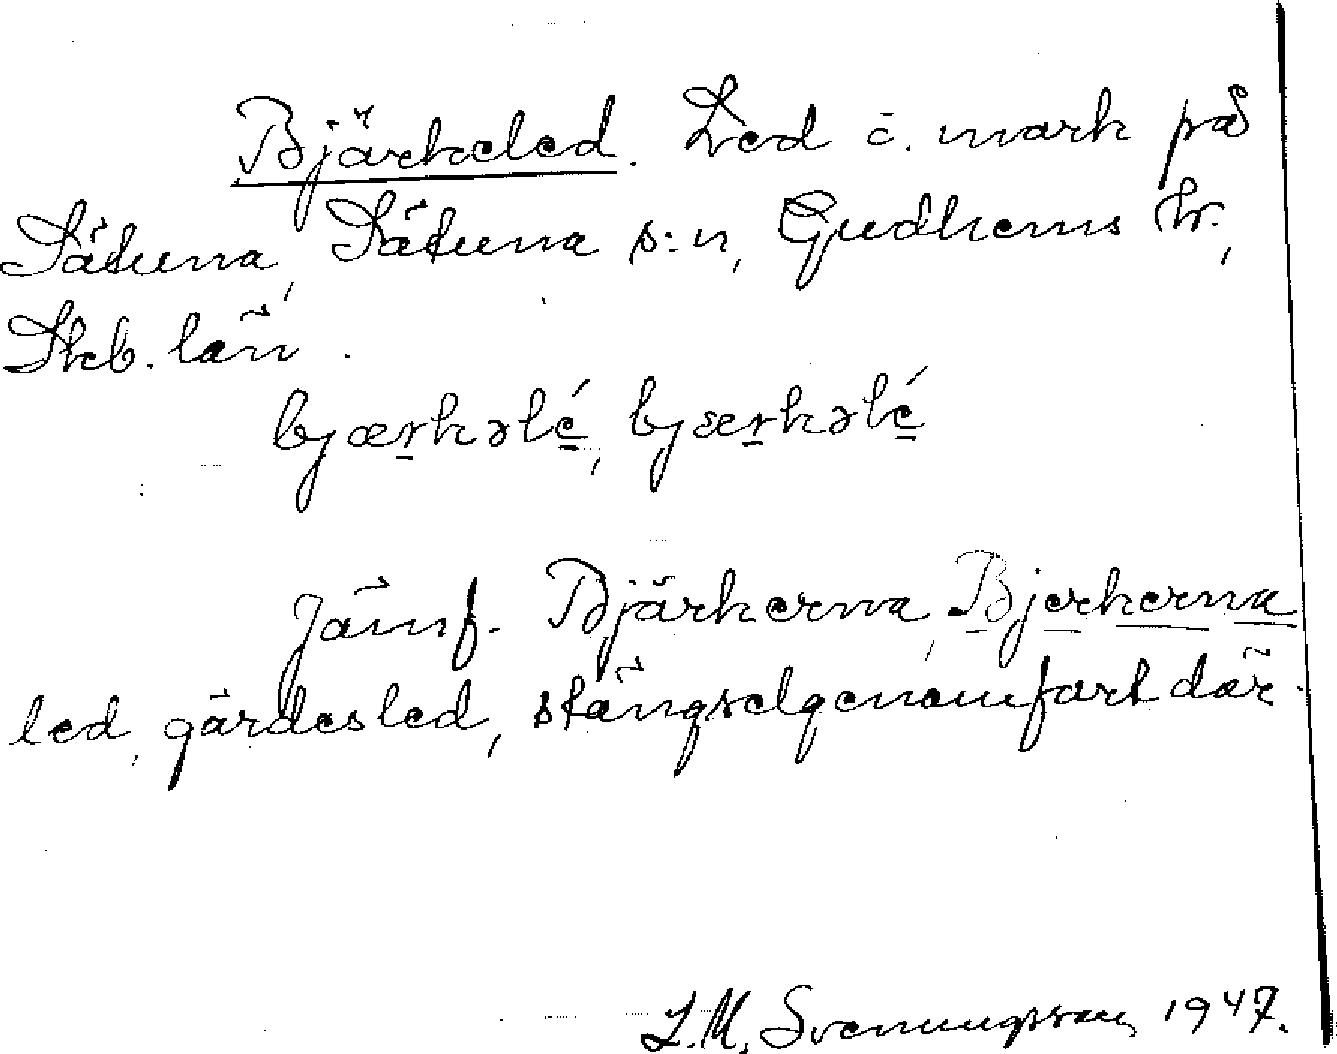 Bjärkeled. Led o. mark på
Sätuna, Sätuna s:n, Gudhems hr.,
Skb. län.
bjærkəlé, bjærkəlé
Jämf. Bjärkerna, Bjerkerna
led, gärdesled, stängselgenomfart där.
L.M. Svenungsson 1947.